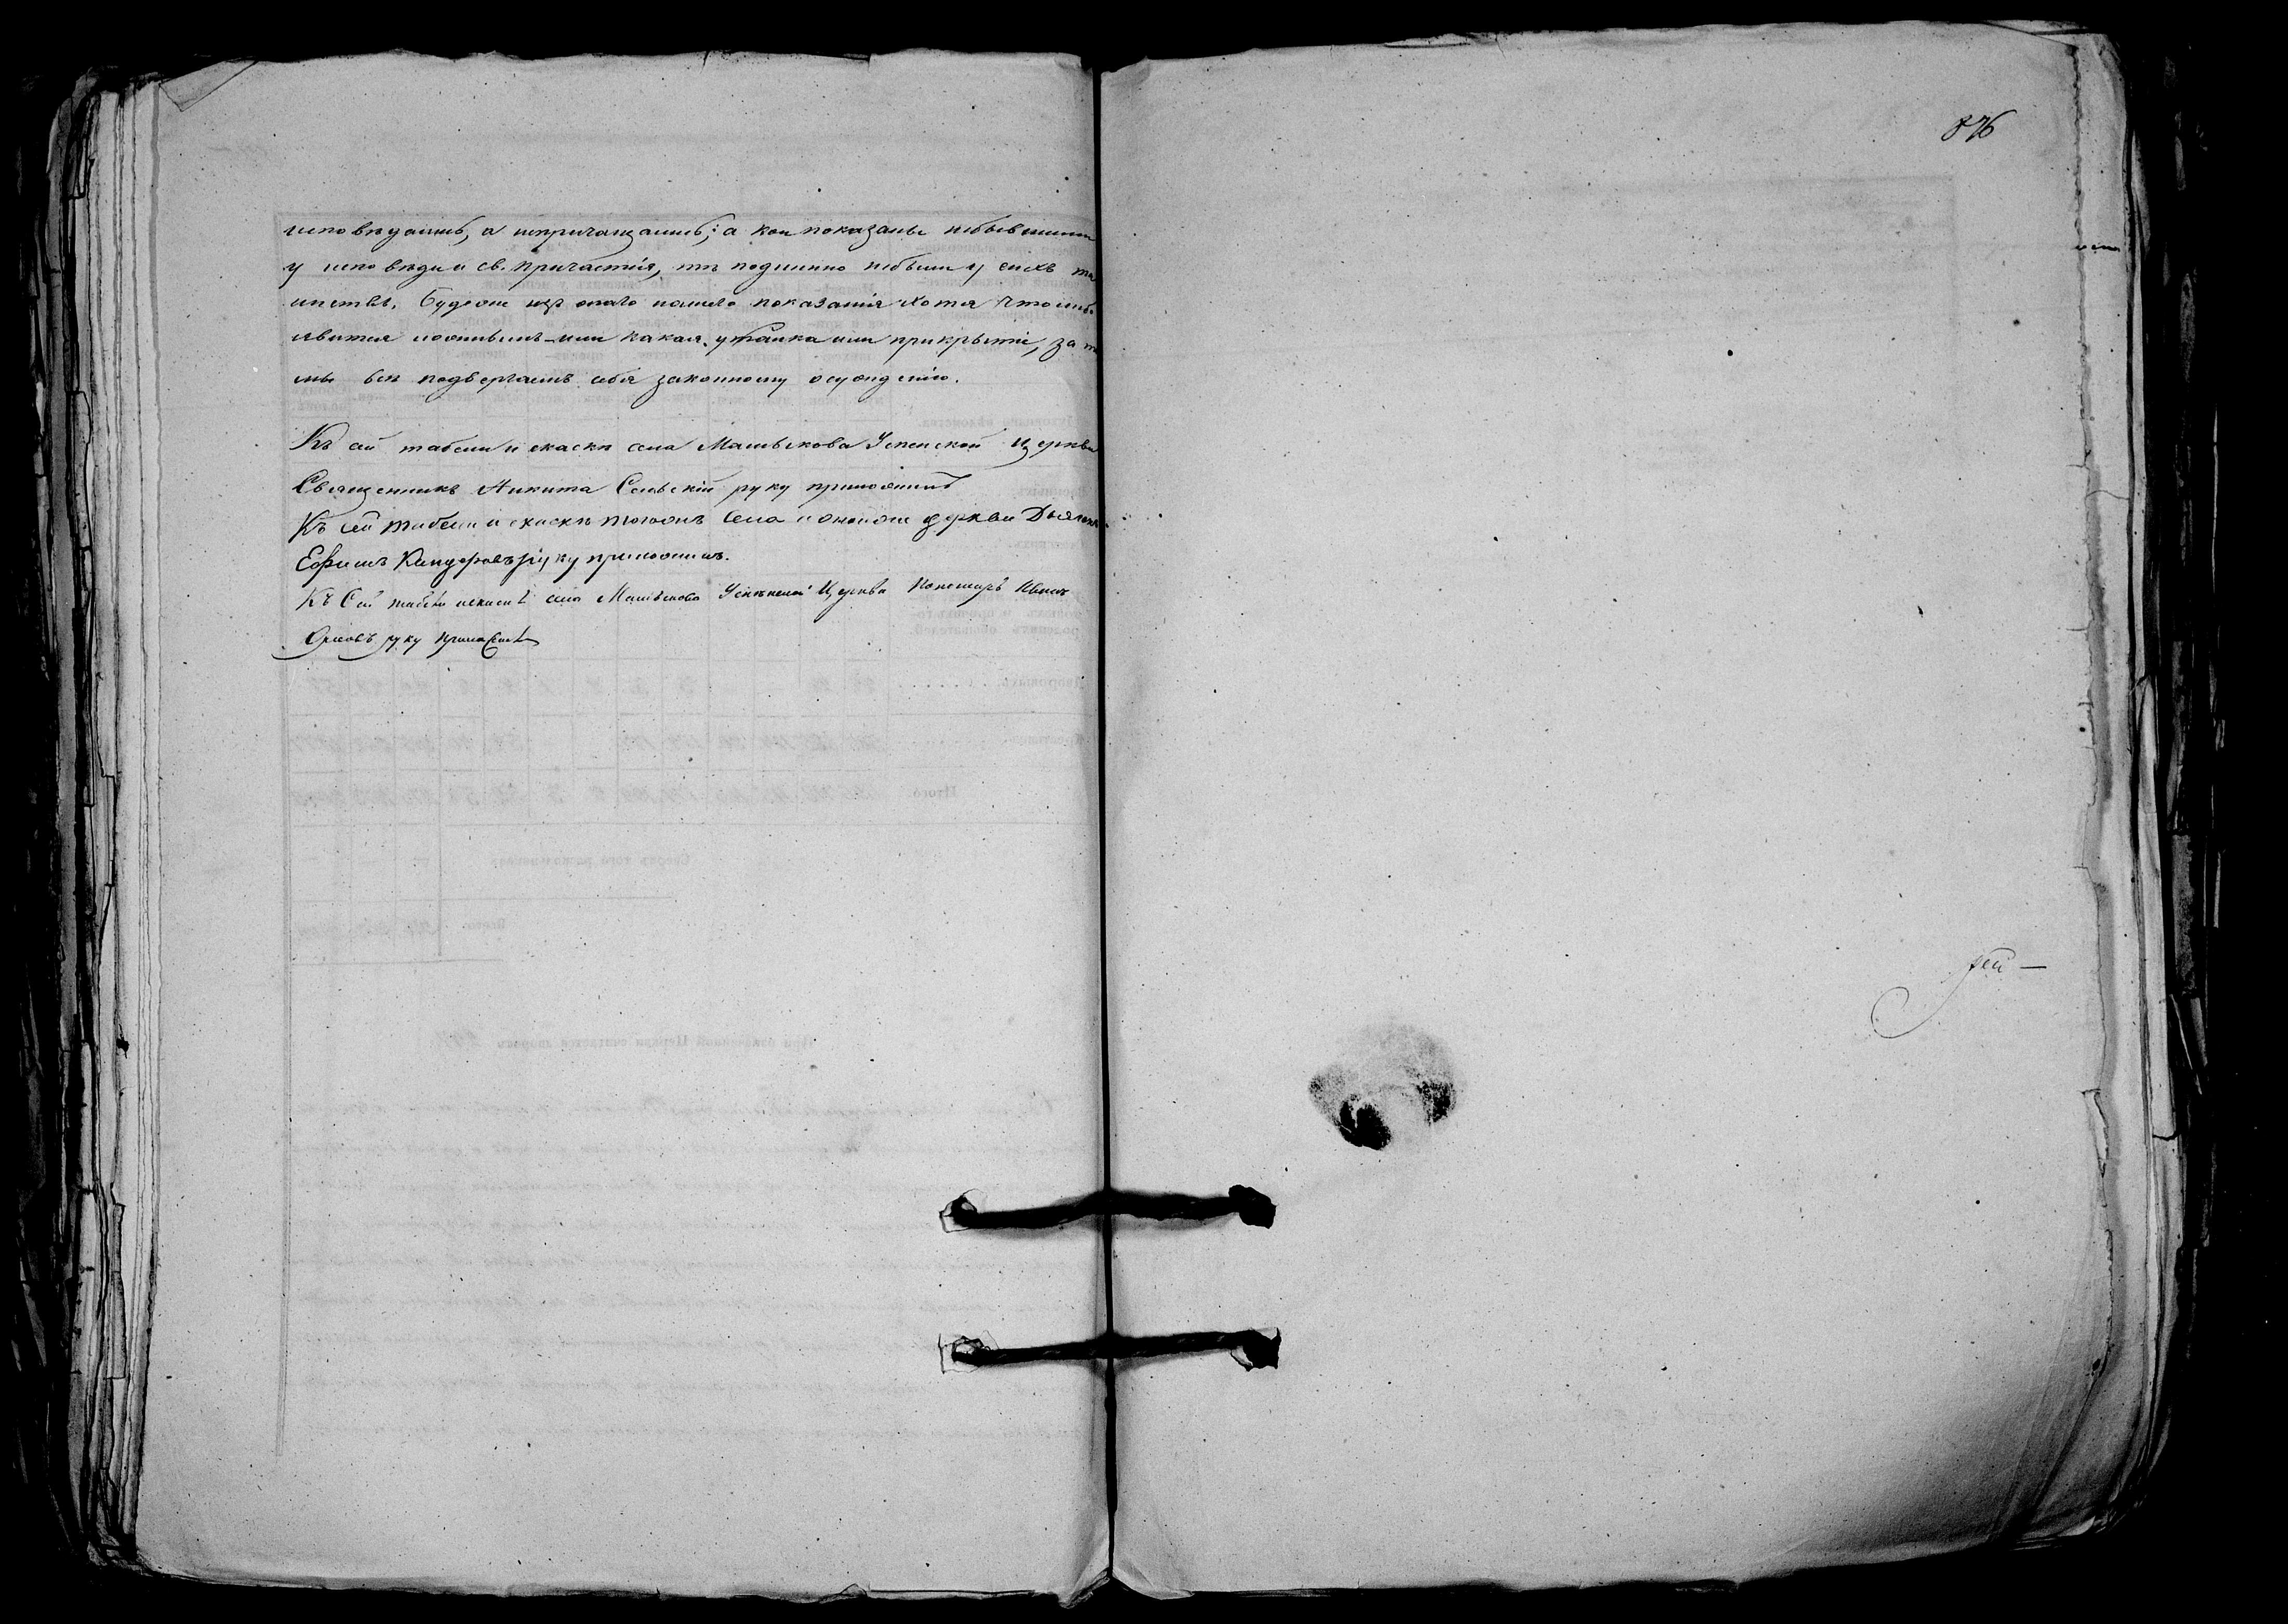 исповѣдались, а непричащались; а кои показаны небывшими
у исповѣди и св. причастія, тѣ подлинно небыли у сихъ та
инствъ. Будеже изъ онаго нашего показанія хотя что либо
явится ложнымъ или какая утайка или прикрытіе, за то
мы всѣ подвергаемъ себя законному осужденію.
Къ сей табели и скаскѣ села Малыкова Успенской церкви
Священникъ Никита Сельскій руку приложилъ
Къ сей табели и скаскѣ тогожъ села и оной же церкви Дьячекъ
Ефимъ руку приложилъ.
Къ сей табели и скаскѣ села Малыкова Успенской Церкви Пономарь Иванъ
Орловъ руку приложилъ
876
рей —